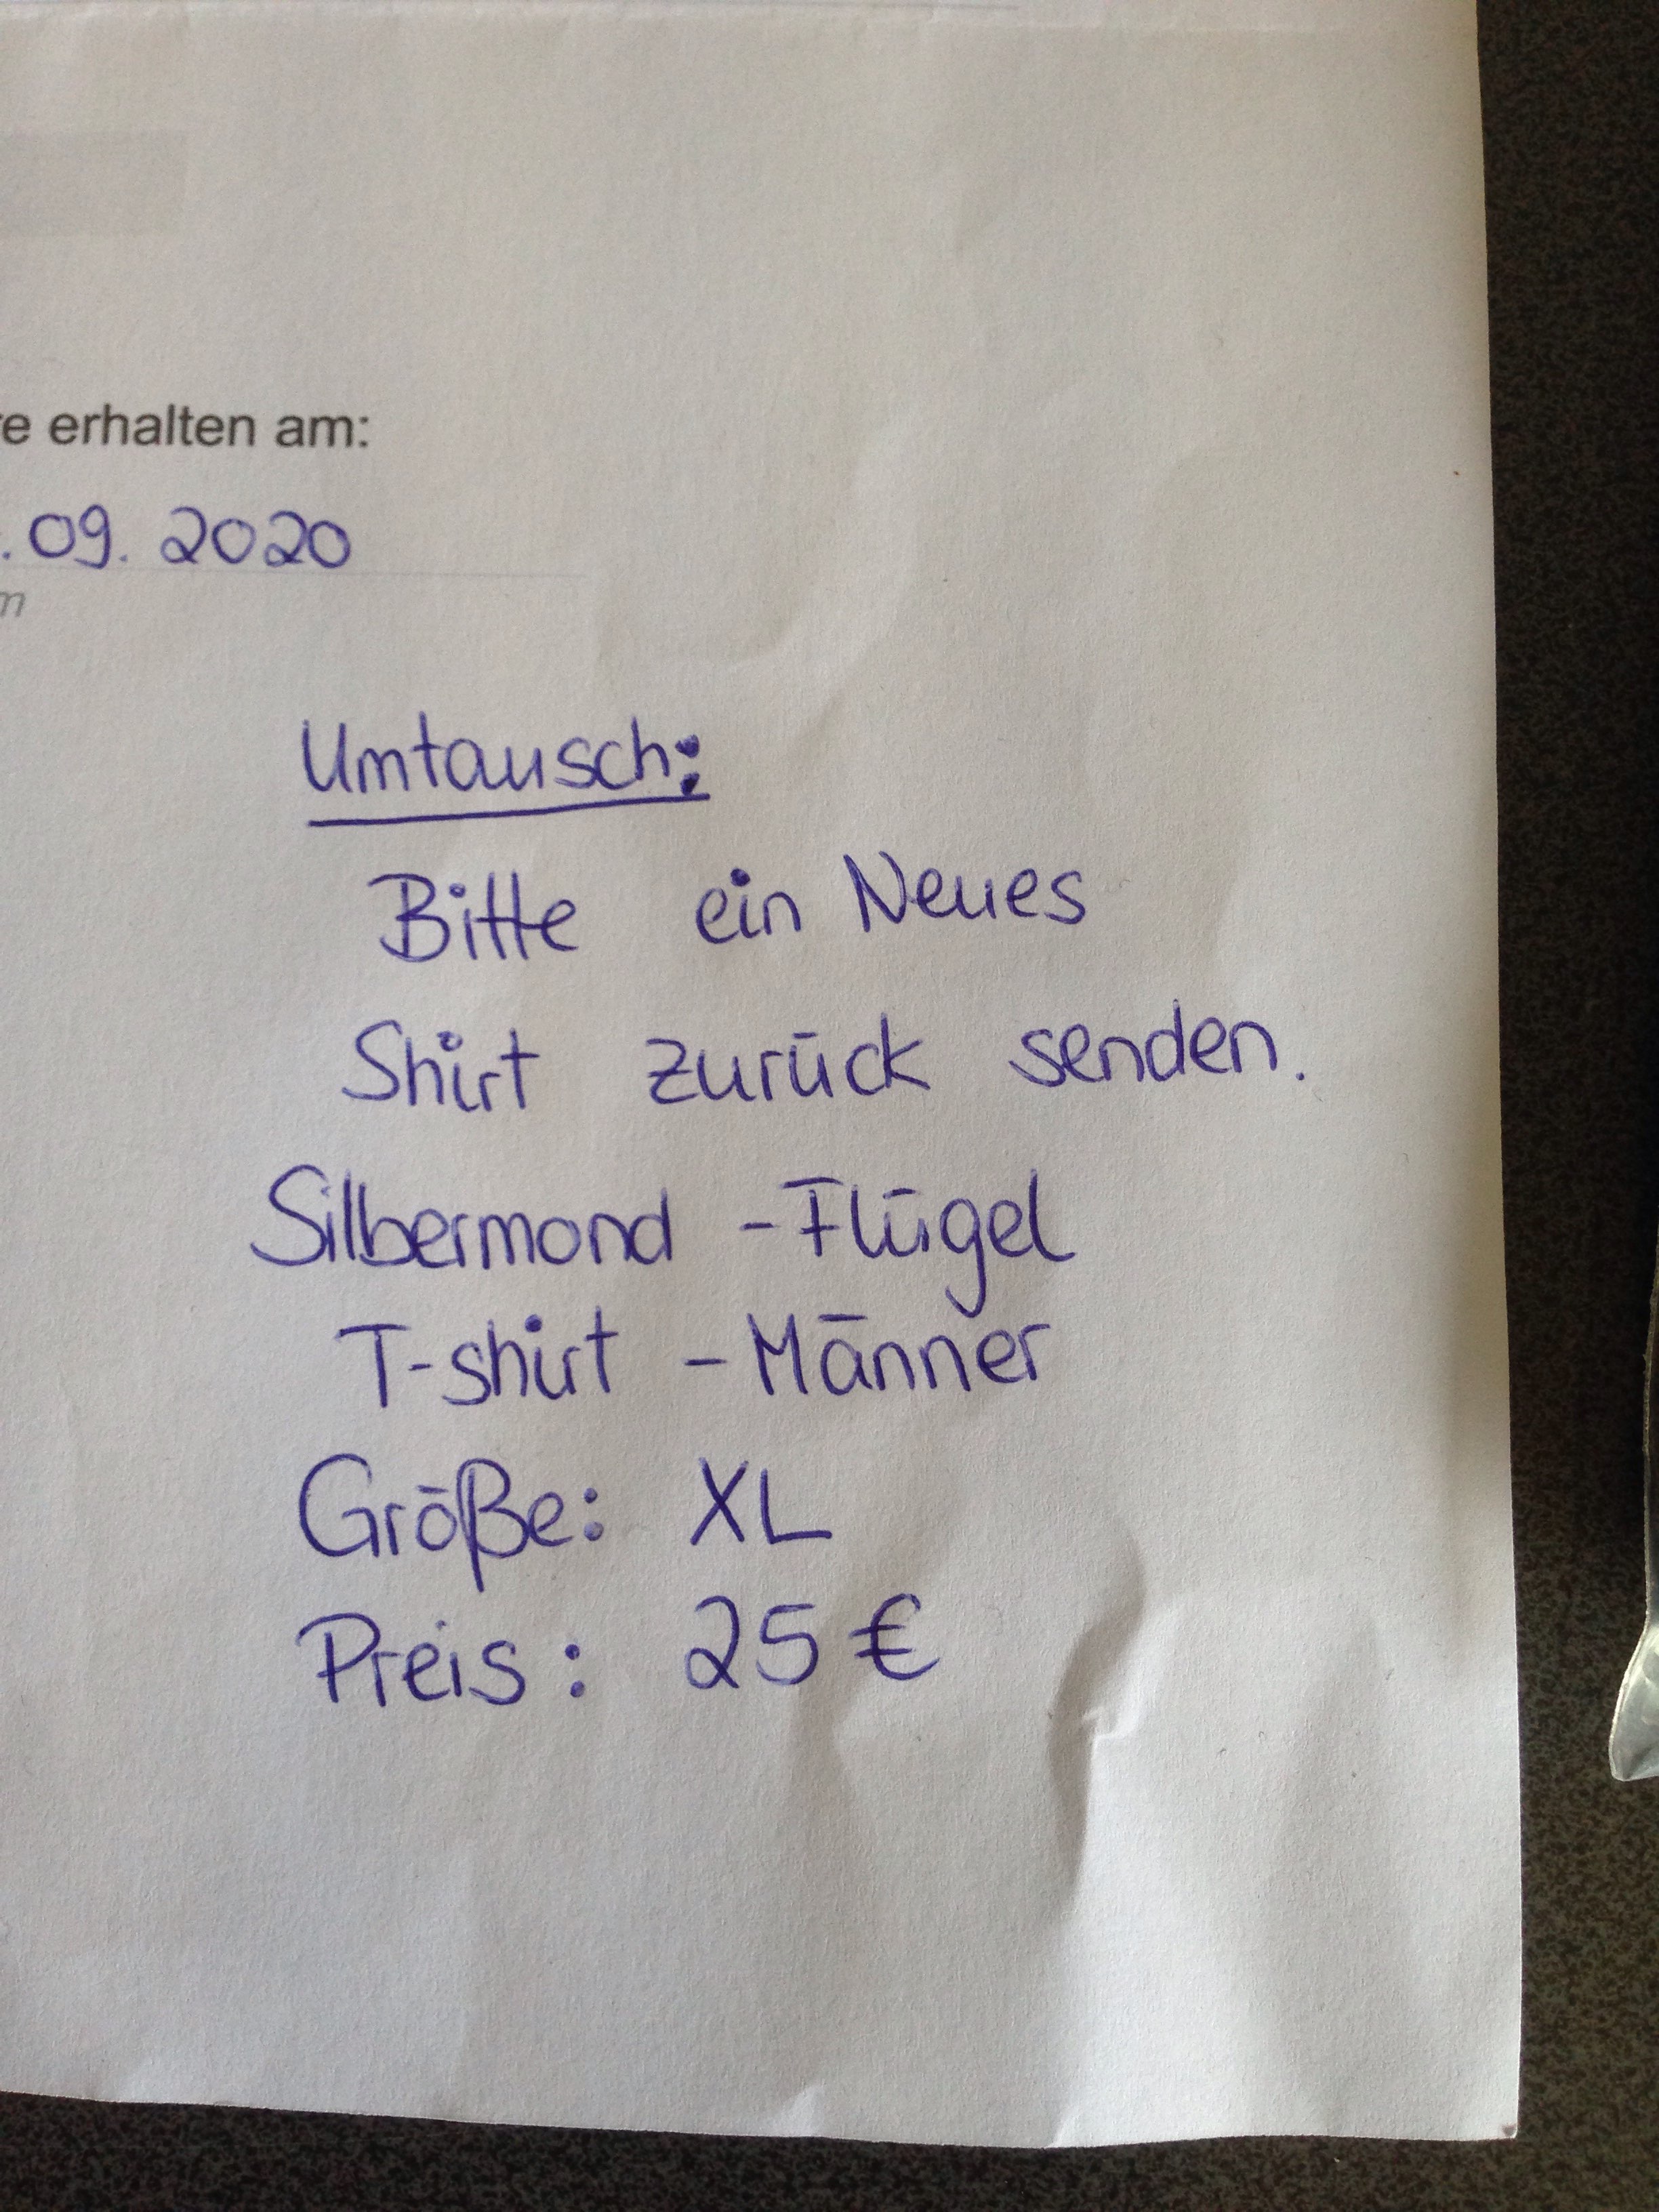 erhalten am:
.09.2020
Umtausch:
Bitte ein Neues
Shirt zurück senden.
Silbermond -Flügel
T-shirt -Männer
Größe: XL
Preis: 25€